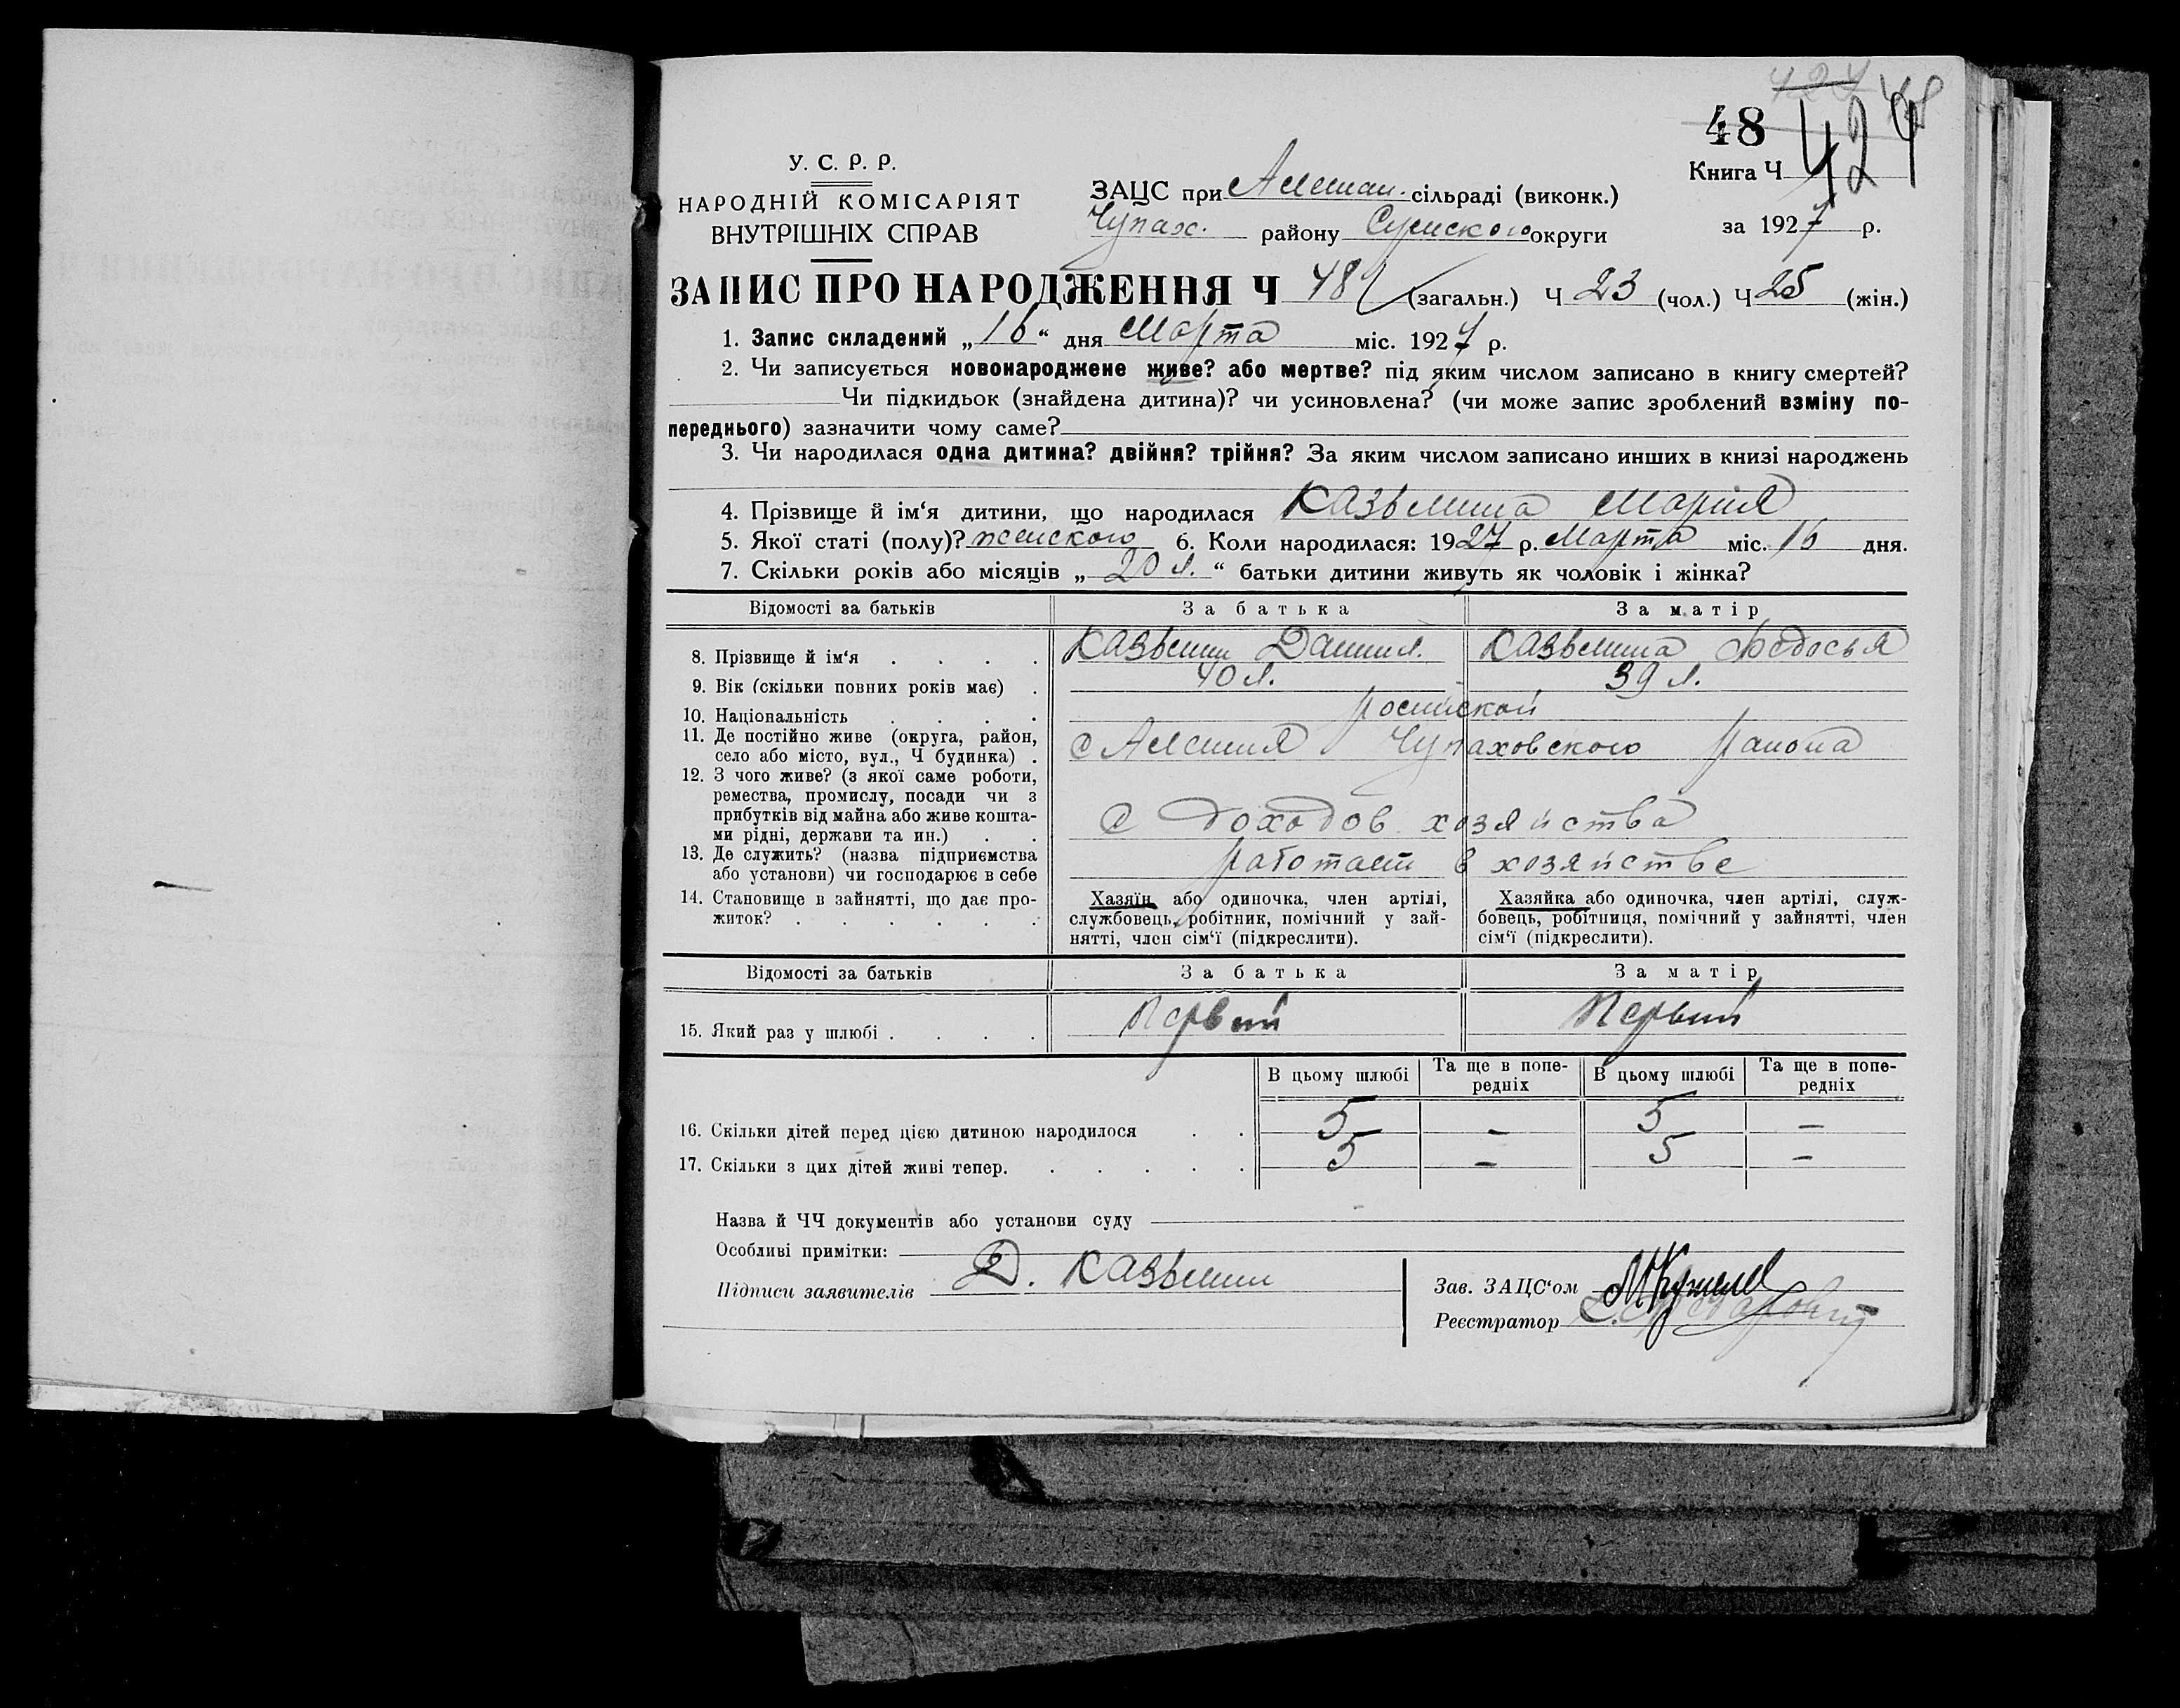 424 48
48 424
У. С. Р. Р.
НАРОДНІЙ КОМІСАРІЯТ
ВНУТРІШНІХ СПРАВ
ЗАЦС при Алешан. сільраді (виконк.)
Чупах. району Сумского округи
Книга Ч
за 1927 р.
ЗАПИС ПРО НАРОДЖЕННЯ Ч 48 (загальн.) Ч 23 (чол.) Ч 25 (жін.)
1. Запис складений „16“ дня Марта міс. 1927 р.
2. Чи записується новонароджене живе? або мертве? під яким числом записано в книгу смертей?
Чи підкидьок (знайдена дитина)? чи усиновлена? (чи може запис зроблений взміну по-
переднього) зазначити чому саме?
3. Чи народилася одна дитина? двійня? трійня? За яким числом записано инших в книзі народжень
4. Прізвище й ім‘я дитини, що народилася Казьмина Мария
5. Якої статі (полу)? женского 6. Коли народилася: 1927 р. Марта міс. 16 дня.
7. Скільки років або місяців „20 л.“ батьки дитини живуть як чоловік і жінка?
Відомості за батьків За батька За матір
8. Прізвище й ім‘я . . . . Казьмин Данил. Казьмина Федосья
9. Вік (скільки повних років має) . 40 л. 39 л.
10. Національність . . . . росийской
11. Де постійно живе (округа, район,
село або місто, вул., Ч будинка) . с Алешня Чупаховского района
12. З чого живе? (з якої саме роботи,
ремества, промислу, посади чи з
прибутків від майна або живе кошта-
ми рідні, держави та ин.) . . С доходов хозяйства
13. Де служить? (назва підприємства
або установи) чи господарює в себе работает в хозяйстве
14. Становище в зайнятті, що дає про-
житок? . . . . . .
Хазяїн або одиночка, член артілі,
службовець, робітник, помічний у зай-
нятті, член сім‘ї (підкреслити).
Хазяйка або одиночка, член артілі, служ-
бовець, робітниця, помічний у зайнятті, член
сім‘ї (підкреслити).
Відомості за батьків За батька За матір
15. Який раз у шлюбі . . . . Первий Первый
В цьому шлюбі Та ще в попе-
редніх В цьому шлюбі Та ще в попе-
редніх
16. Скільки дітей перед цією дитиною народилося . . 5 – 5 –
17. Скільки з цих дітей живі тепер. . . . . . 5 – 5 –
Назва й ЧЧ документів або установи суду
Особливі примітки:
Підписи заявителів Д. Казьмин
Зав. ЗАЦС‘ом
Реєстратор